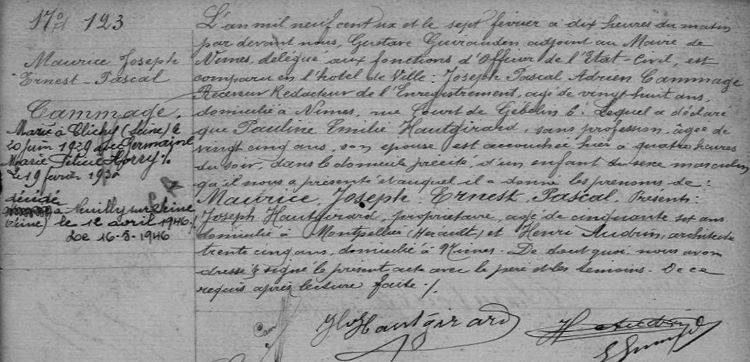 N° 123
Maurice Joseph
Ernest-Pascal
Cammage.
Marié à Clichy (Seine) le
20 juin 1929 avec Germaine
Marie
le 19 février 1930
décédé
à Neuilly sur Seine
(Seine) le 12 avril 1946
Le 16-5-1946
L'an mil neuf cent six et le sept février à dix heures du matin
par devant nous, Gustave Guirauden adjoint au Maire de
Nimes, délégué aux fonctions d'Officier de l'Etat-Civil, est
comparu en l'hôtel de Ville: Joseph Pascal Adrien Cammage
Receveur Rédacteur de l'Enregistrement, agé de vingt huit ans,
domicilié à Nimes, rue Court de Gébelin 6. Lequel a déclaré
que Pauline Emilie Hautgirard, sans profession, agée de
vingt cinq ans, son épouse est accouchée hier à quatre heures
du soir, dans le domicile précité, d'un enfant du sexe masculin
qu'il nous a présenté et auquel il a donné les prénoms de:
Maurice, Joseph Ernest Pascal. Présents:
Joseph Hautgirard, propriétaire, agé de cinquante sept ans
domicilié à Montpellier (Hérault) et Henri Audrin, architecte
trente cinq ans, domicilié à Nimes. De tout quoi nous avons
dressé & signé le présent acte avec le père et les témoins. De ce
requis après lecture faite./.
Hautgirard